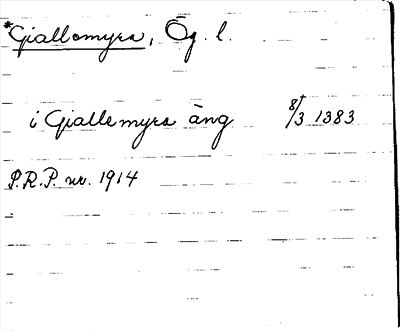 *Giallomyra, Ög. l.
i Gjallemyra äng 8/3 1383
P.R.P. nr. 1914